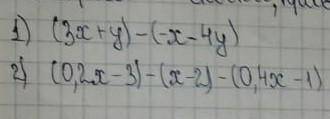 1) (3x+y)-(-x-4y)
2) (0,2x-3)-(x-2)-(0,4x-1)